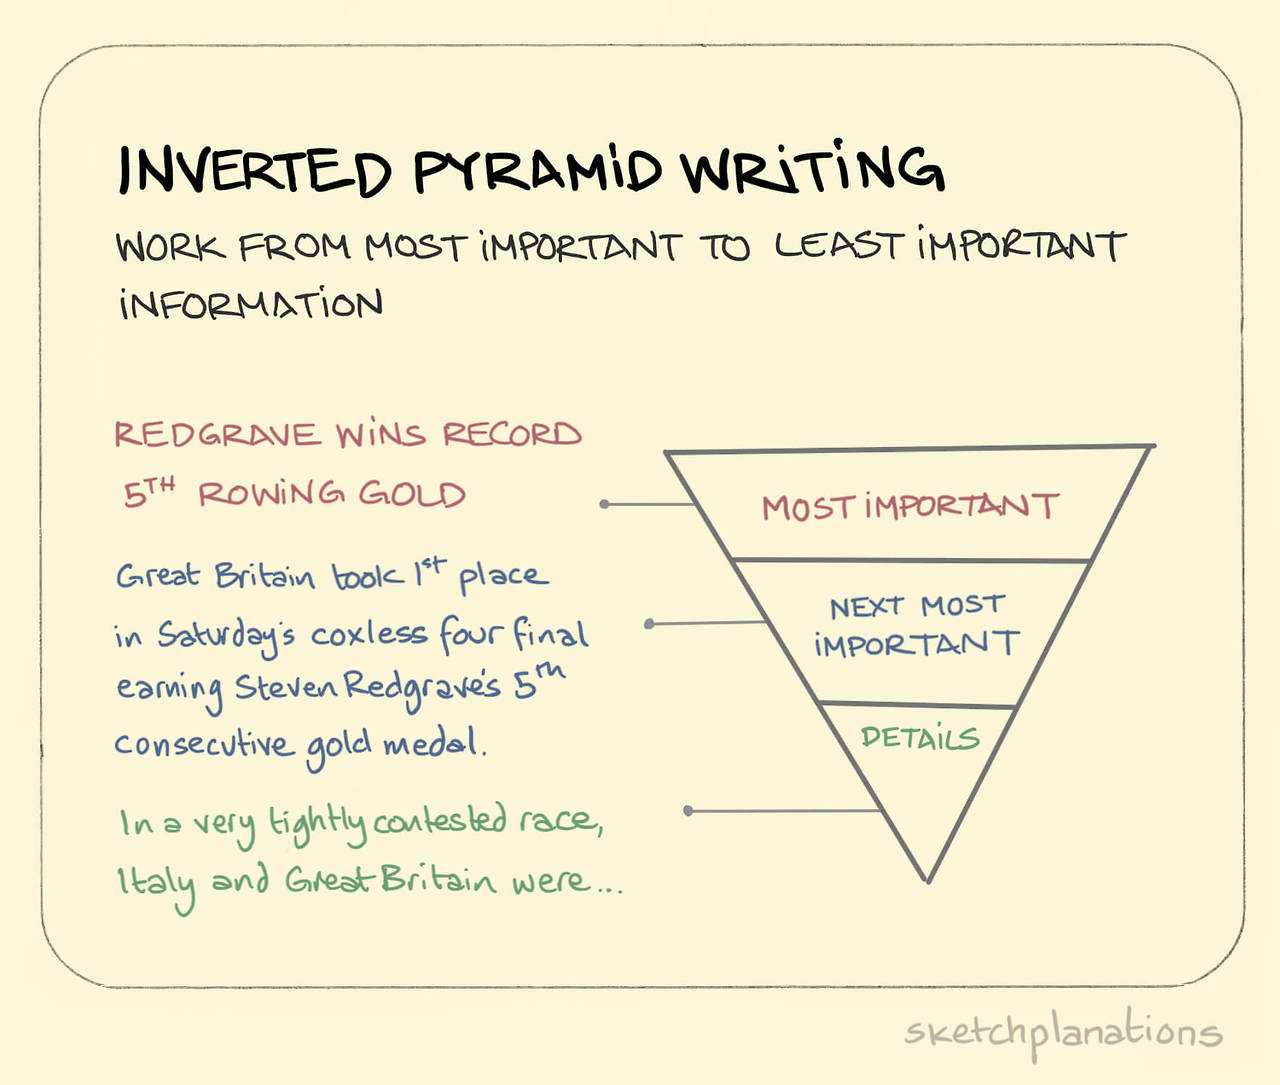 INVERTED PYRAMID WRITING
WORK FROM MOST IMPORTANT TO LEAST IMPORTANT
INFORMATION
REDGRAVE WINS RECORD
5TH ROWING GOLD
Great Britain took 1st place
in Saturday's coxless four final
earning Steven Redgrave's 5th
consecutive gold medal.
In a very tightly contested race,
Italy and Great Britain were...
MOST IMPORTANT
NEXT MOST
IMPORTANT
DETAILS
sketchplanations